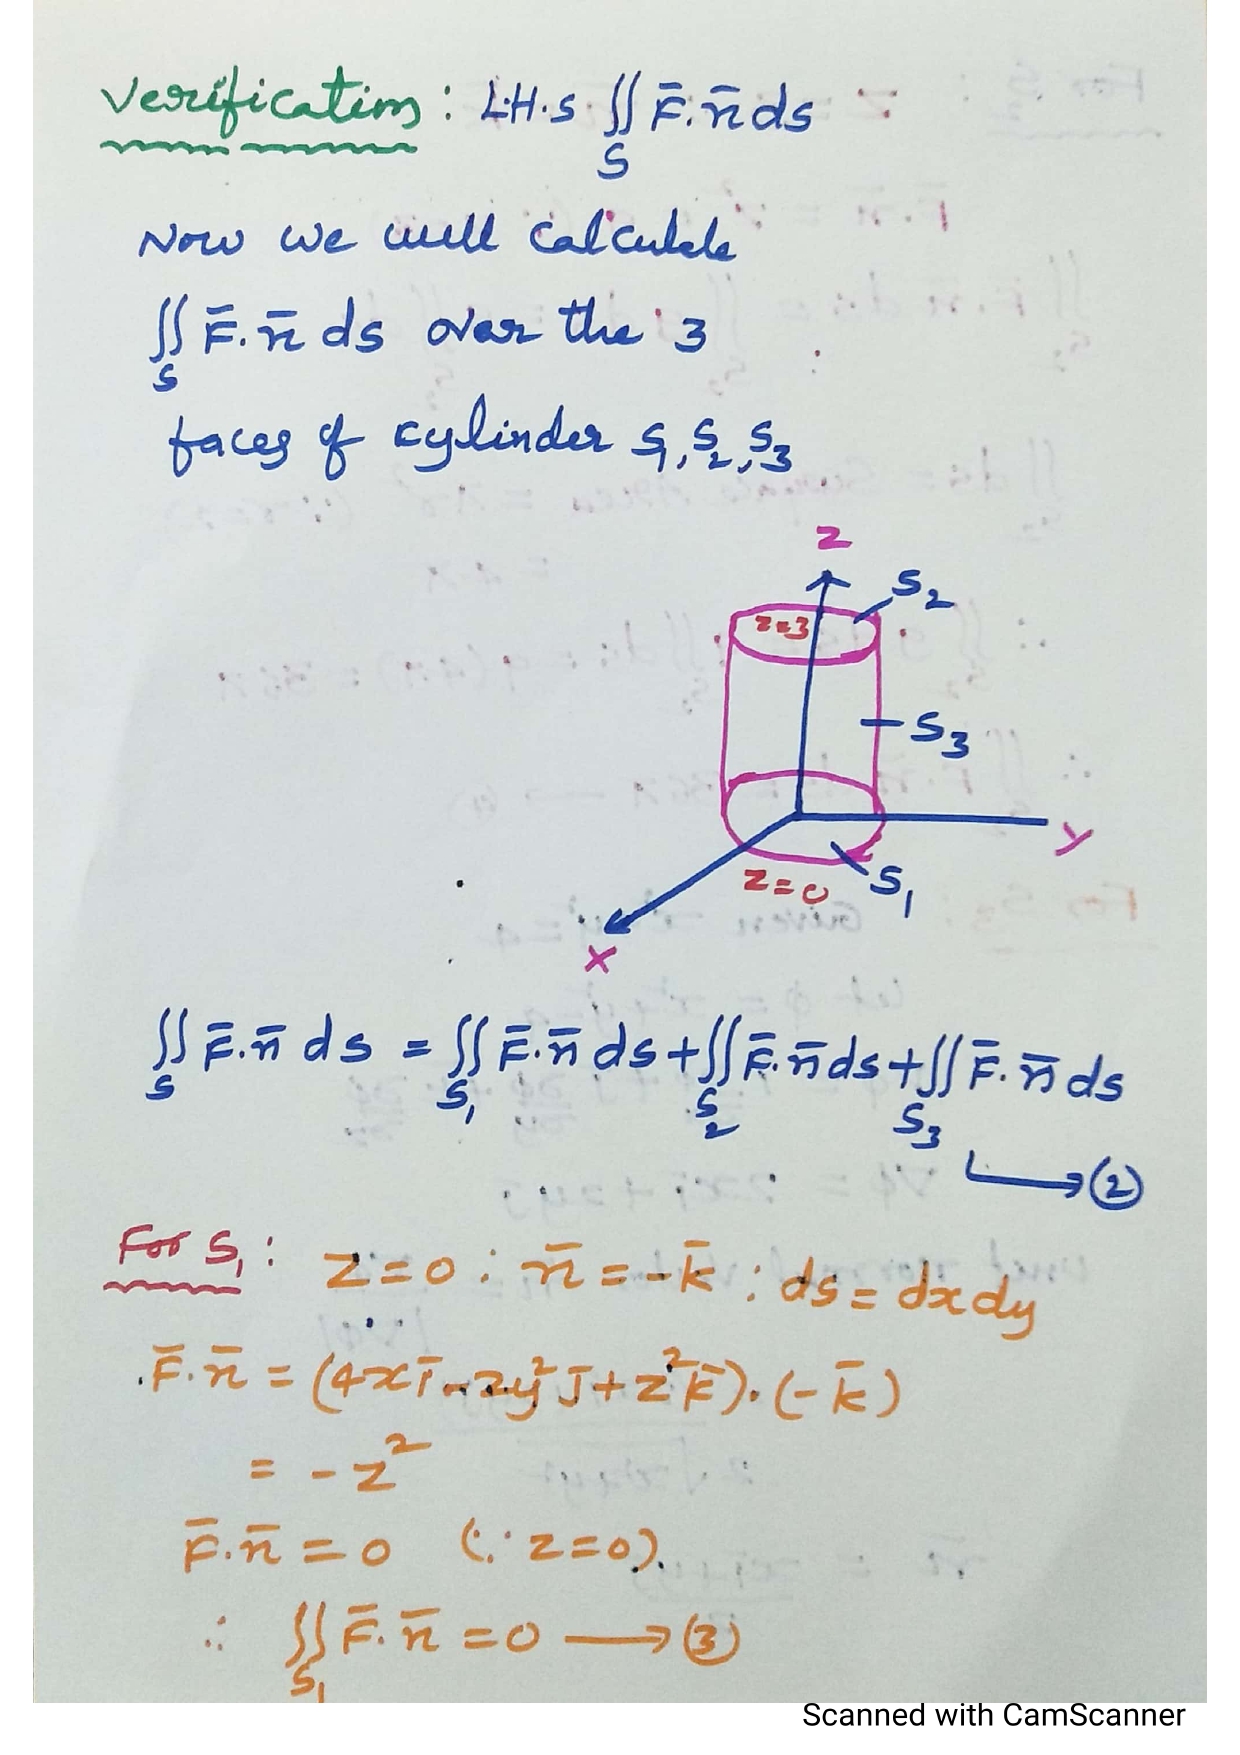 Verification : L.H.S ∬_S F̄.n̄ ds
Now we will calculate
∬_S F̄.n̄ ds over the 3
faces of cylinder S₁, S₂, S₃
Z
S₂
z=3
S₃
y
z=0
S₁
x
∬_S F̄.n̄ ds = ∬_S₁ F̄.n̄ ds + ∬_S₂ F̄.n̄ ds + ∬_S₃ F̄.n̄ ds
→ (2)
For S₁ : z=0 : n̄ = -k̄ : ds = dxdy
F̄.n̄ = (4xī - 2y²j̄ + z²k̄).(-k̄)
= -z²
F̄.n̄ = 0 (∵ z=0).
∴ ∬_S₁ F̄.n̄ = 0 → (3)
Scanned with CamScanner